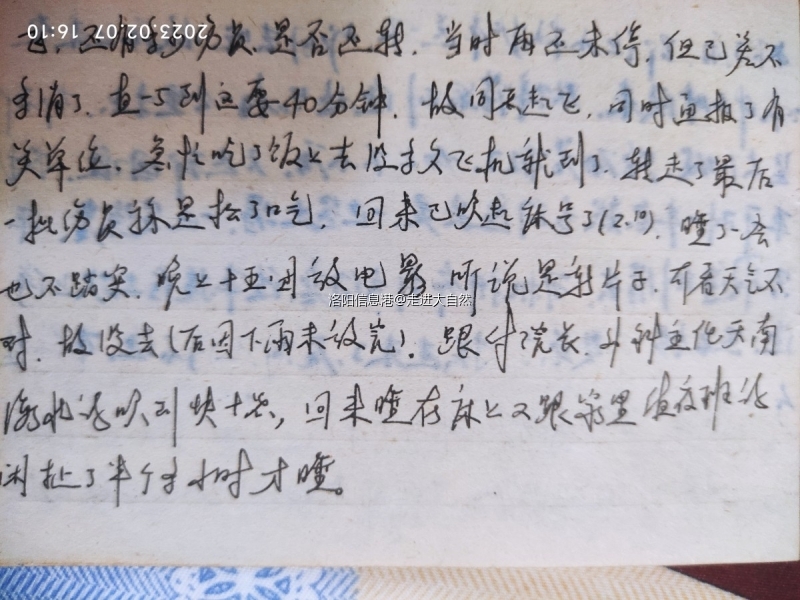 2023.02.07 16:10
还有多少伤员,是否还转。当时雨还未停,但已差不
多消了。直一5到这要40分钟,故同意起飞,同时通报了有
关单位。急忙吃了饭上去没多久飞机就到了。转走了最后
一批伤员称是松了口气,回来已吹起床号了(2.10)。睡了一会
也不踏实。晚上十五团放电影,听说是新片子,可看天气不
对,故没去(后因下雨未放完)。跟付院长、主任天南
海北吹到快十点,回来睡在床上又跟室里值夜班
闲扯了半个多小时才睡。
洛阳信息港@走进大自然